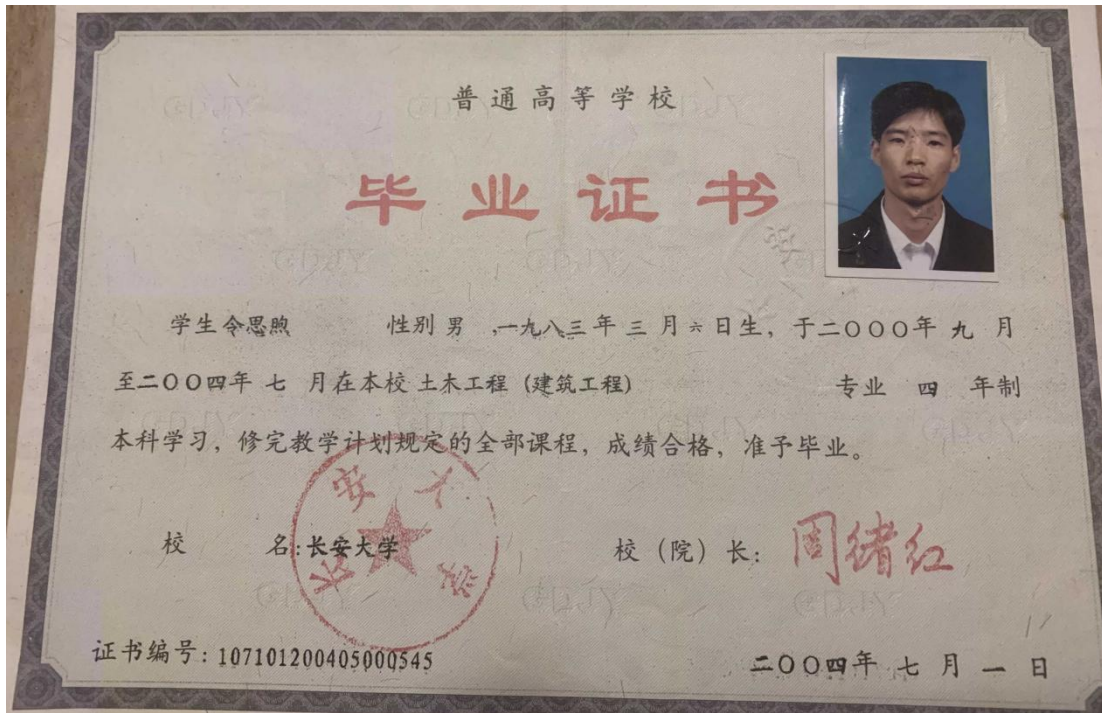 普通高等学校
毕业证书
学生令思煦 性别 男 ,一九八三年 三 月 六 日生，于二〇〇〇年 九 月
至二〇〇四年 七 月在本校 土木工程（建筑工程） 专业 四 年制
本科学习，修完教学计划规定的全部课程，成绩合格，准予毕业。
校 名:长安大学 校（院）长: 周绪红
长安大学
证书编号: 107101200405000545 二〇〇四年 七 月 一 日